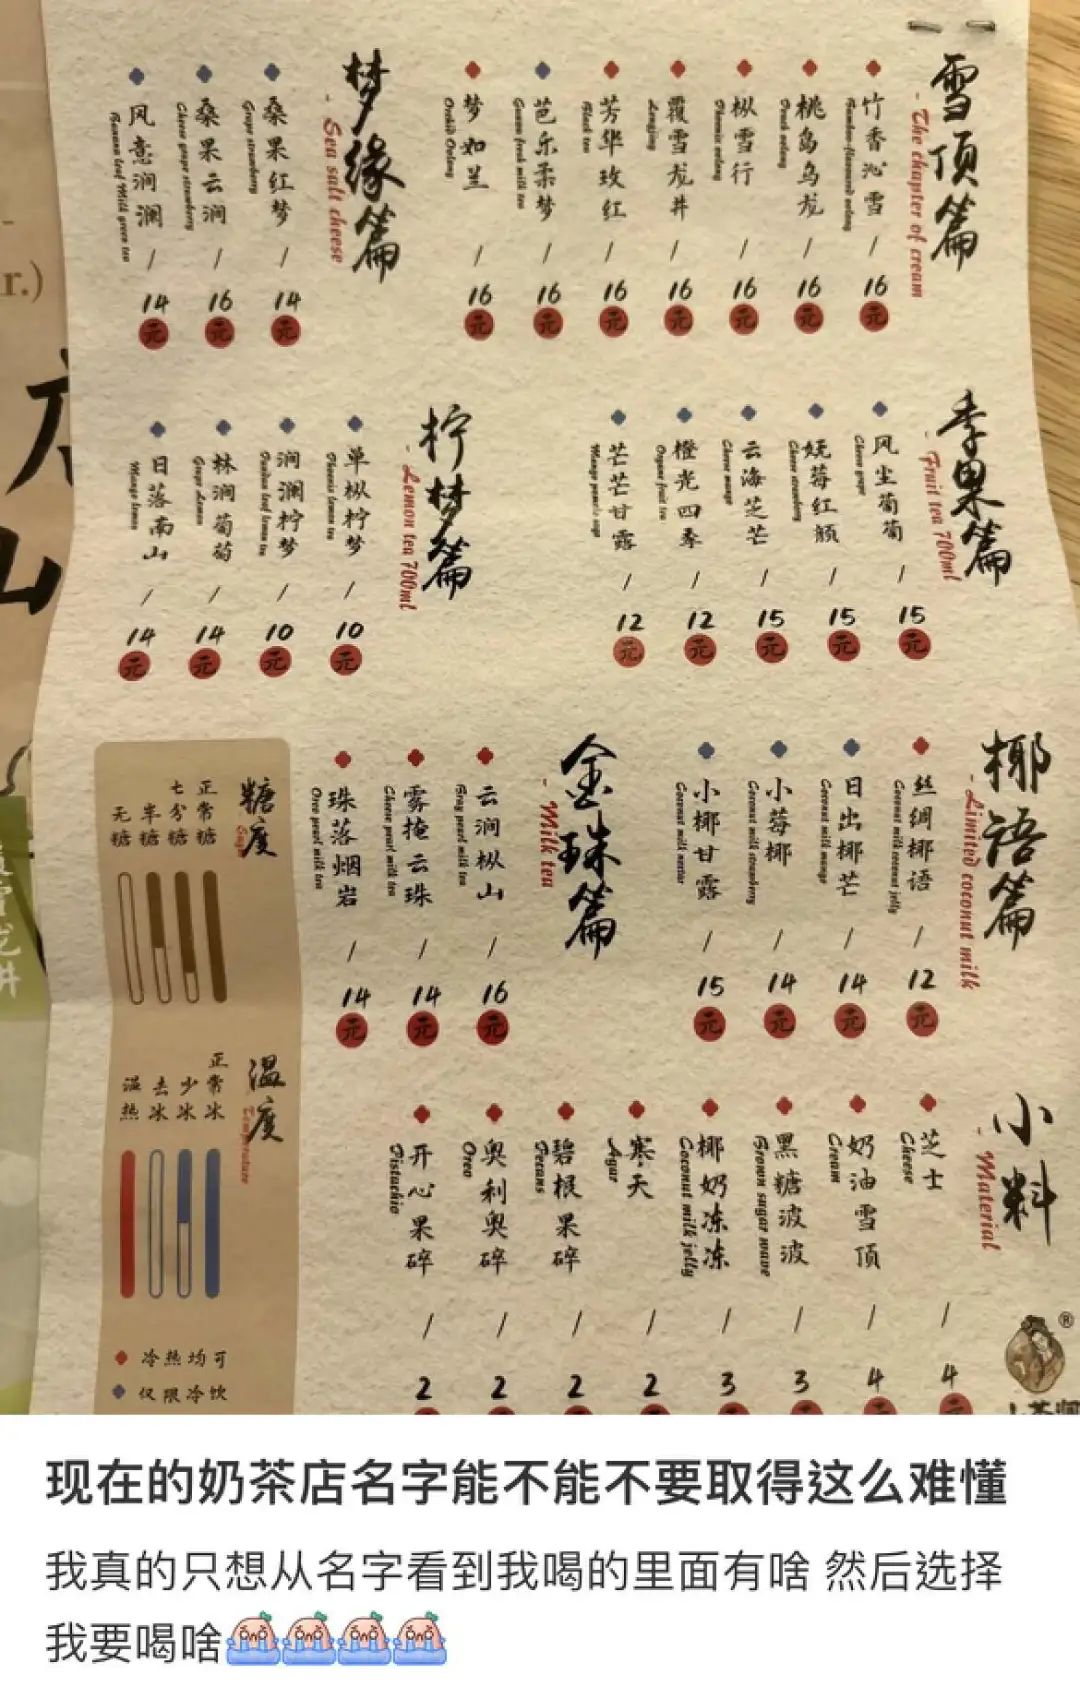 雪顶篇
- The chapter of cream
竹香沁雪
Bamboo-flavoured oolong
/
16
元
桃乌乌龙
Peach oolong
/
16
元
枞雪行
Phoenix oolong
/
16
元
覆雪龙井
Longjing
/
16
元
芳华玫红
Black tea
/
16
元
芭乐柔梦
Guava fresh milk tea
/
16
元
梦如兰
Orchid Oolong
/
16
元
梦缘篇
- Sea salt cheese
桑果红梦
Grape strawberry
/
14
元
桑果云涧
Cheese grape strawberry
/
16
元
风意涧澜
Banana leaf Milk green tea
/
14
元
季果篇
- Fruit tea 700ml
风尘葡萄
Cheese grape
/
15
元
妩莓红颜
Cheese strawberry
/
15
元
云海芝芒
Cheese mango
/
15
元
橙光四季
Orange fruit tea
/
12
元
芒芒甘露
Mango pomelo sago
/
12
元
柠梦篇
- Lemon tea 700ml
单枞柠梦
Phoenix lemon tea
/
10
元
涧澜柠梦
lemon tea
/
10
元
林涧葡萄
Grape Lemon
/
14
元
日落南山
Mango lemon
/
14
元
椰语篇
- Limited coconut milk
丝绸椰语
Coconut milk coconut jelly
/
12
元
日出椰芒
Coconut milk mango
/
14
元
小莓椰
Coconut milk strawberry
/
14
元
小椰甘露
Coconut milk nectar
/
15
元
金珠篇
- Milk tea
云涧枞山
pearl milk tea
/
16
元
雾掩云珠
Cheese pearl milk tea
/
14
元
珠落烟岩
Oreo pearl milk tea
/
14
元
糖度
正常糖
七分糖
半糖
无糖
温度
Temperature
正常冰
少冰
去冰
温热
冷热均可
仅限冷饮
小料
- Material
芝士
Cheese
/
4
奶油雪顶
Cream
/
4
黑糖波波
Brown sugar wave
/
3
椰奶冻冻
Coconut milk jelly
/
3
寒天
Agar
/
2
碧根果碎
Pecans
/
2
奥利奥碎
Oreo
/
2
开心果碎
Pistachio
/
2
®
r.)
现在的奶茶店名字能不能不要取得这么难懂
我真的只想从名字看到我喝的里面有啥 然后选择
我要喝啥